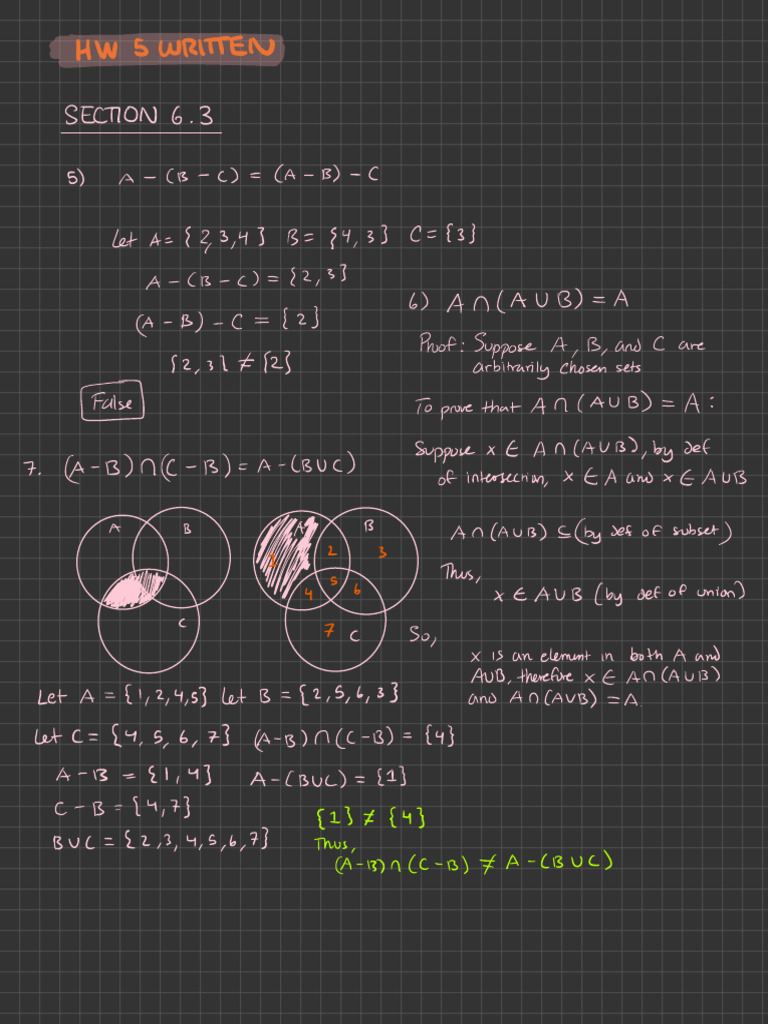 HW 5 WRITTEN
SECTION 6.3
5) A - (B - C) = (A - B) - C
Let A = {2,3,4} B = {4,3} C = {3}
A - (B - C) = {2,3}
(A - B) - C = {2}
{2,3} ≠ {2}
False
6) A ∩ (A ∪ B) = A
Proof: Suppose A, B, and C are
arbitrarily chosen sets
To prove that A ∩ (A ∪ B) = A:
Suppose x ∈ A ∩ (A ∪ B), by def
of intersection, x ∈ A and x ∈ A ∪ B
A ∩ (A ∪ B) ⊆ (by def of subset)
Thus,
x ∈ A ∪ B (by def of union)
So,
x is an element in both A and
A∪B, therefore x ∈ A ∩ (A ∪ B)
and A ∩ (A ∪ B) = A.
7. (A - B) ∩ (C - B) = A - (B ∪ C)
A B
C
A B
1 2 3
5
4 6
7 C
Let A = {1,2,4,5} Let B = {2,5,6,3}
Let C = {4,5,6,7} (A-B) ∩ (C-B) = {4}
A - B = {1,4} A - (B ∪ C) = {1}
C - B = {4,7}
B ∪ C = {2,3,4,5,6,7}
{1} ≠ {4}
Thus,
(A-B) ∩ (C-B) ≠ A - (B ∪ C)